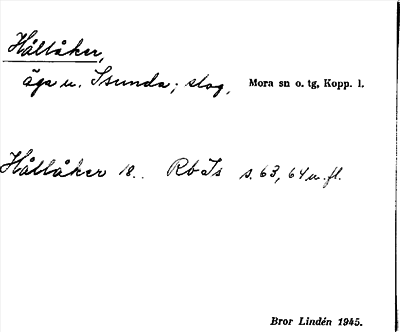 Hållåker,
äga u. Isunda; slog. Mora sn o. tg, Kopp. l.
Hållåker 18.. Rb Is s. 63, 64 u. fl.
Bror Lindén 1945.